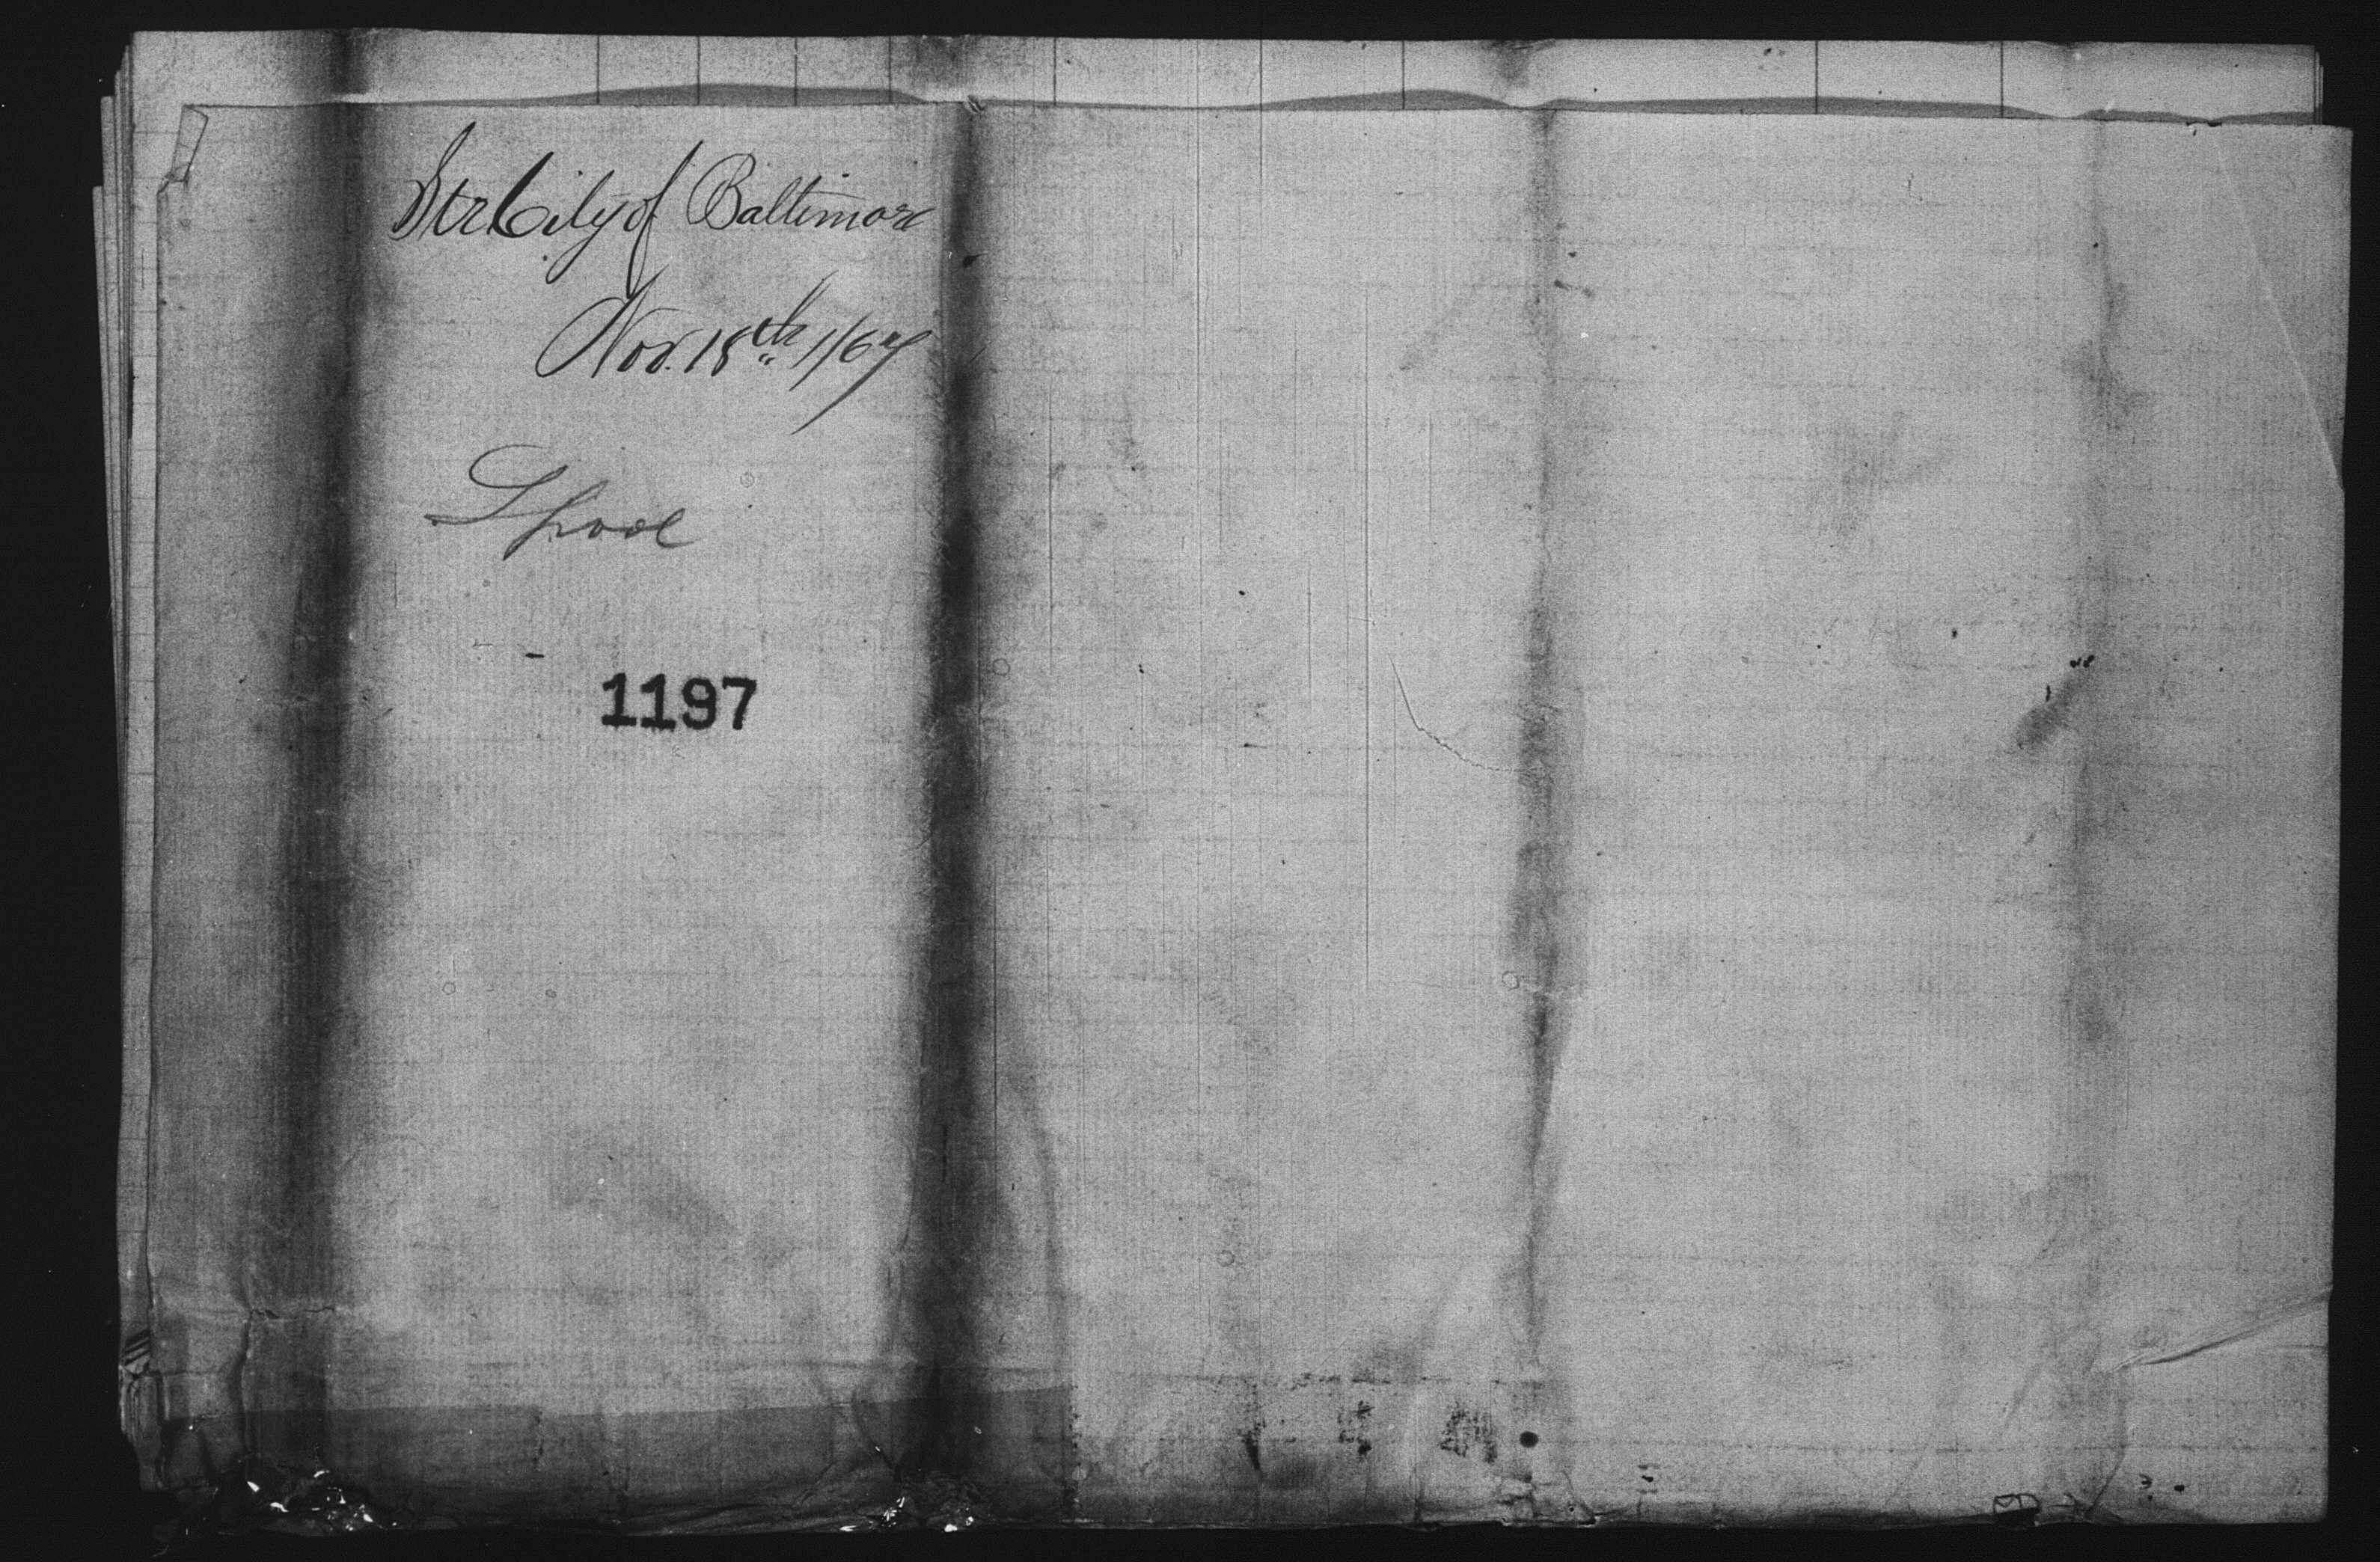 Str City of Baltimore
Nov. 18th 1/67
Lpool
1197